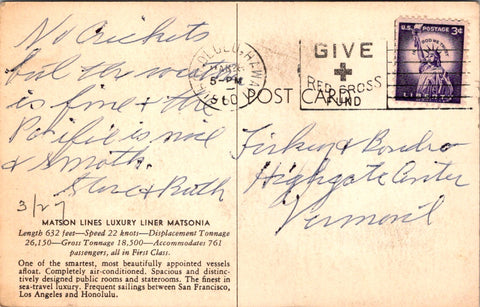 No Crickets
but the weather
is fine & the
Pacific is nice
& smooth.
Steve & Ruth
3/27
MATSON LINES LUXURY LINER MATSONIA
Length 632 feet—Speed 22 knots—Displacement Tonnage
26,150—Gross Tonnage 18,500—Accommodates 761
passengers, all in First Class.
One of the smartest, most beautifully appointed vessels
afloat. Completely air-conditioned. Spacious and distinc-
tively designed public rooms and staterooms. The finest in
sea-travel luxury. Frequent sailings between San Francisco,
Los Angeles and Honolulu.
POST CARD
HONOLULU, HAWAII
MAR
5-PM
1960
GIVE
RED CROSS
FUND
U.S. POSTAGE 3¢
IN GOD WE TRUST
LIBERTY
&
Highgate Center
Vermont